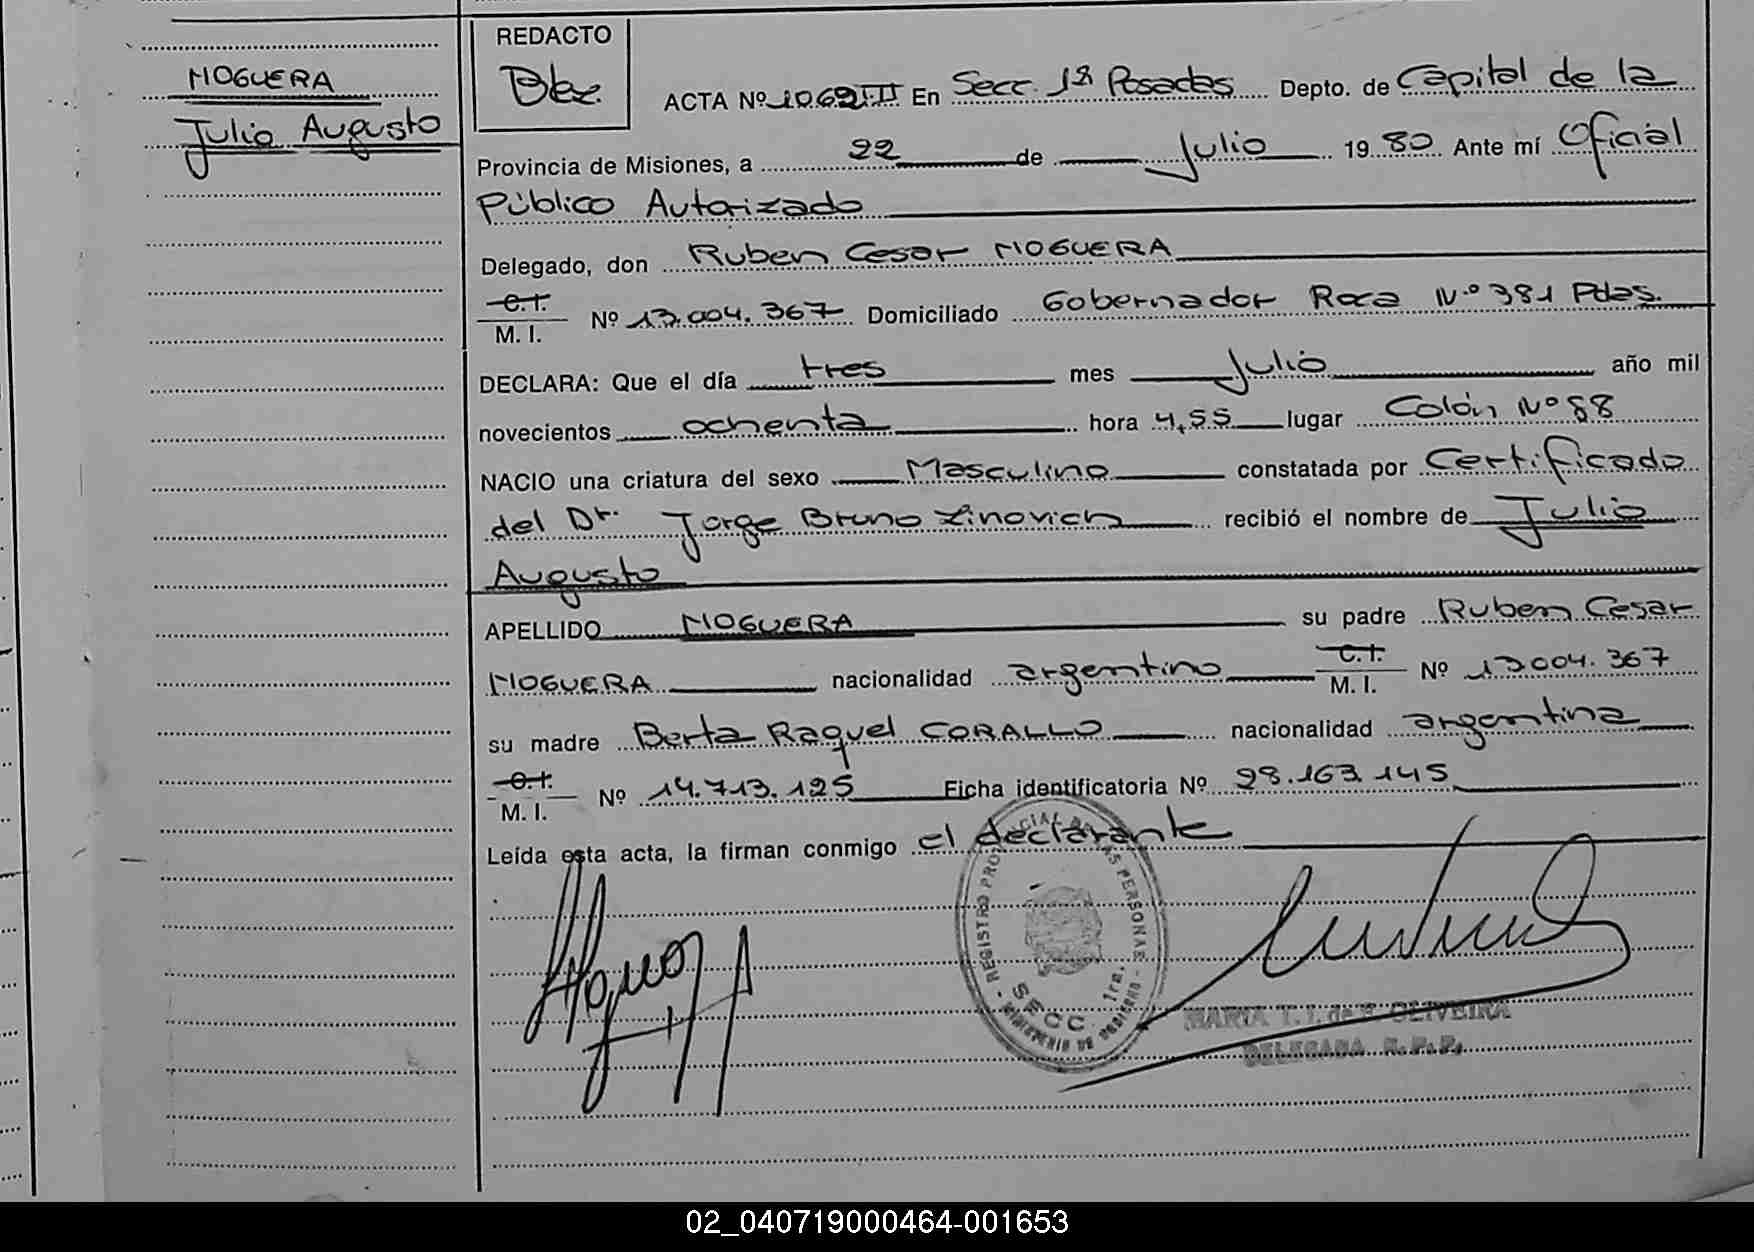 NOGUERA
Julio Augusto
REDACTO
ACTA Nº 1069 III En Secc. 1ª Posadas Depto. de Capital de la
Provincia de Misiones, a 22 de Julio 1980 Ante mí Oficial
Público Autorizado
Delegado, don Ruben Cesar NOGUERA
C.I.
M. I. Nº 13.004.367 Domiciliado Gobernador Roca Nº 381 Pdas.
DECLARA: Que el día tres mes Julio año mil
novecientos ochenta hora 4,55 lugar Colón Nº 88
NACIO una criatura del sexo Masculino constatada por Certificado
del Dr. Jorge Bruno Zinovich recibió el nombre de Julio
Augusto
APELLIDO NOGUERA su padre Ruben Cesar
NOGUERA nacionalidad argentino C.I. M. I. Nº 13004.367
su madre Berta Raquel CORALLO nacionalidad argentina
C.I.
M. I. Nº 14.713.125 Ficha identificatoria Nº 28.163.145
Leída esta acta, la firman conmigo el declarante
REGISTRO PROVINCIAL DE LAS PERSONAS
SECC. 1ra.
MINISTERIO DE GOBIERNO
MARIA T. I. de F. OLIVEIRA
DELEGADA R.P.P.
02_040719000464-001653